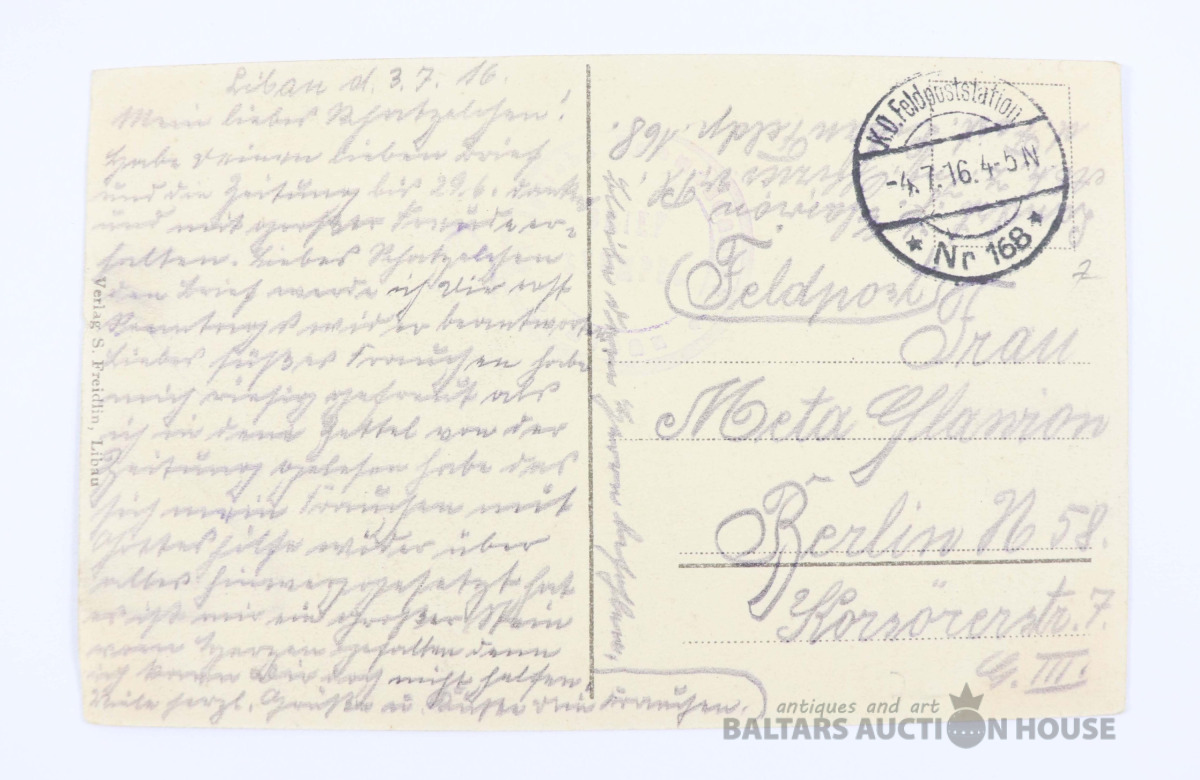 Libau d. 3.7.16.
Mein liebes Schatzelchen!
Habe deinen lieben Brief
und die Zeitung bis 29.6. dankend
und mit großer Freude er-
halten. Liebes Schatzelchen
den Brief werde ich Dir erst
wider beantworten
liebes süßes Frauchen habe
mich riesig gefreut als
ich in dem Zettel von der
Zeitung gelesen habe das
sich mein Frauchen mit
Gotteshilfe wider über
alles hinweggesetzt hat
es ist mir ein großer Stein
vom Herzen gefallen denn
ich kann Dir doch nicht helfen
Viele herzl. Grüße u. Küsse dein Frauchen.
Verlag S. Freidlin, Libau
K.D. Feldpoststation
-4.7.16.4-5N
Nr 168
Feldp. 168.
Feldpost
Frau
Meta Glawion
Berlin N 58.
Korsörerstr. 7.
G. III.
antiques and art
BALTARS AUCTION HOUSE